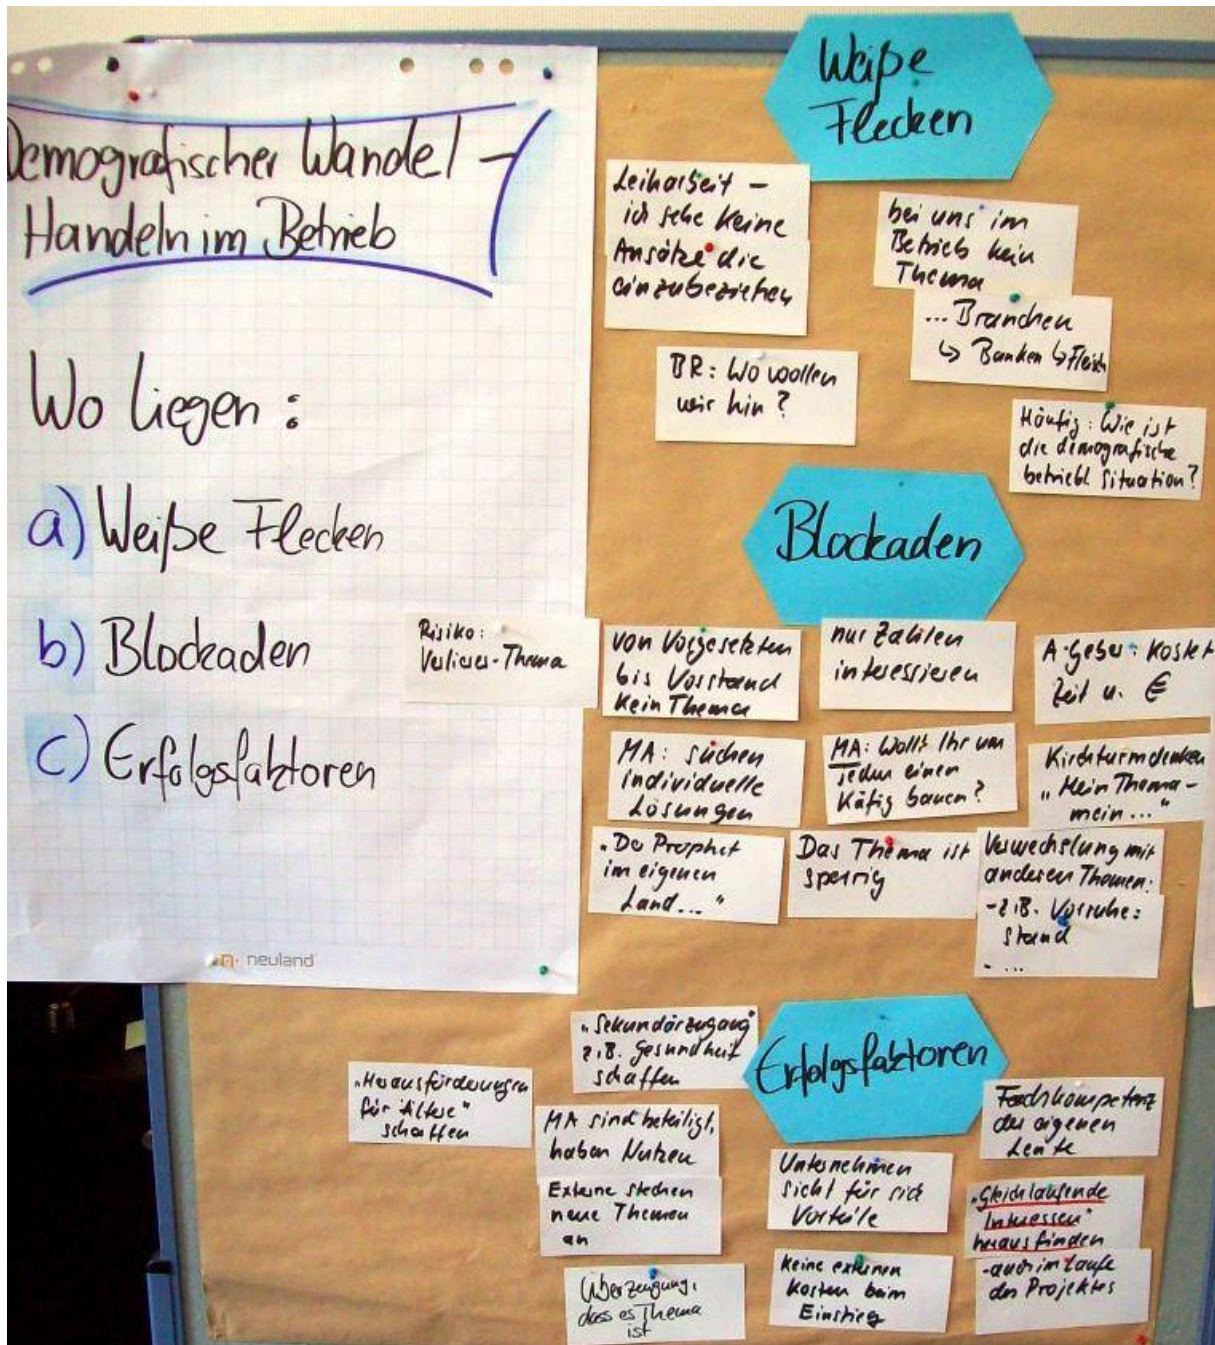 Demografischer Wandel -
Handeln im Betrieb
Wo liegen:
a) Weiße Flecken
b) Blockaden
c) Erfolgsfaktoren
neuland
Weiße
Flecken
Leiharbeit –
ich sehe keine
Ansätze die
einzubeziehen
bei uns im
Betrieb kein
Thema
... Branchen
↳ Banken ↳ Fleisch
BR: Wo wollen
wir hin?
Häufig: Wie ist
die demografische
betriebl. Situation?
Blockaden
Risiko:
Verlierer-Thema
von Vorgesetzten
bis Vorstand
kein Thema
nur Zahlen
interessieren
A-geber: kostet
Zeit u. €
MA: suchen
individuelle
Lösungen
MA: Wollt Ihr um
jeden einen
Käfig bauen?
Kirchturmdenken
„Mein Thema –
mein..."
„Der Prophet
im eigenen
Land..."
Das Thema ist
sperrig
Verwechslung mit
anderen Themen:
- z.B. Vorruhe=
stand
- ...
Erfolgsfaktoren
„Sekundärzugang"
z.B. Gesundheit
schaffen
„Herausforderungen
für Ältere"
schaffen
MA sind beteiligt,
haben Nutzen
Externe stechen
neue Themen
an
Überzeugung,
dass es Thema
ist
Unternehmen
sieht für sich
Vorteile
keine externen
Kosten beim
Einstieg
Fachkompetenz
der eigenen
Leute
„Gleichlaufende
Interessen"
herausfinden
- auch im Laufe
des Projektes